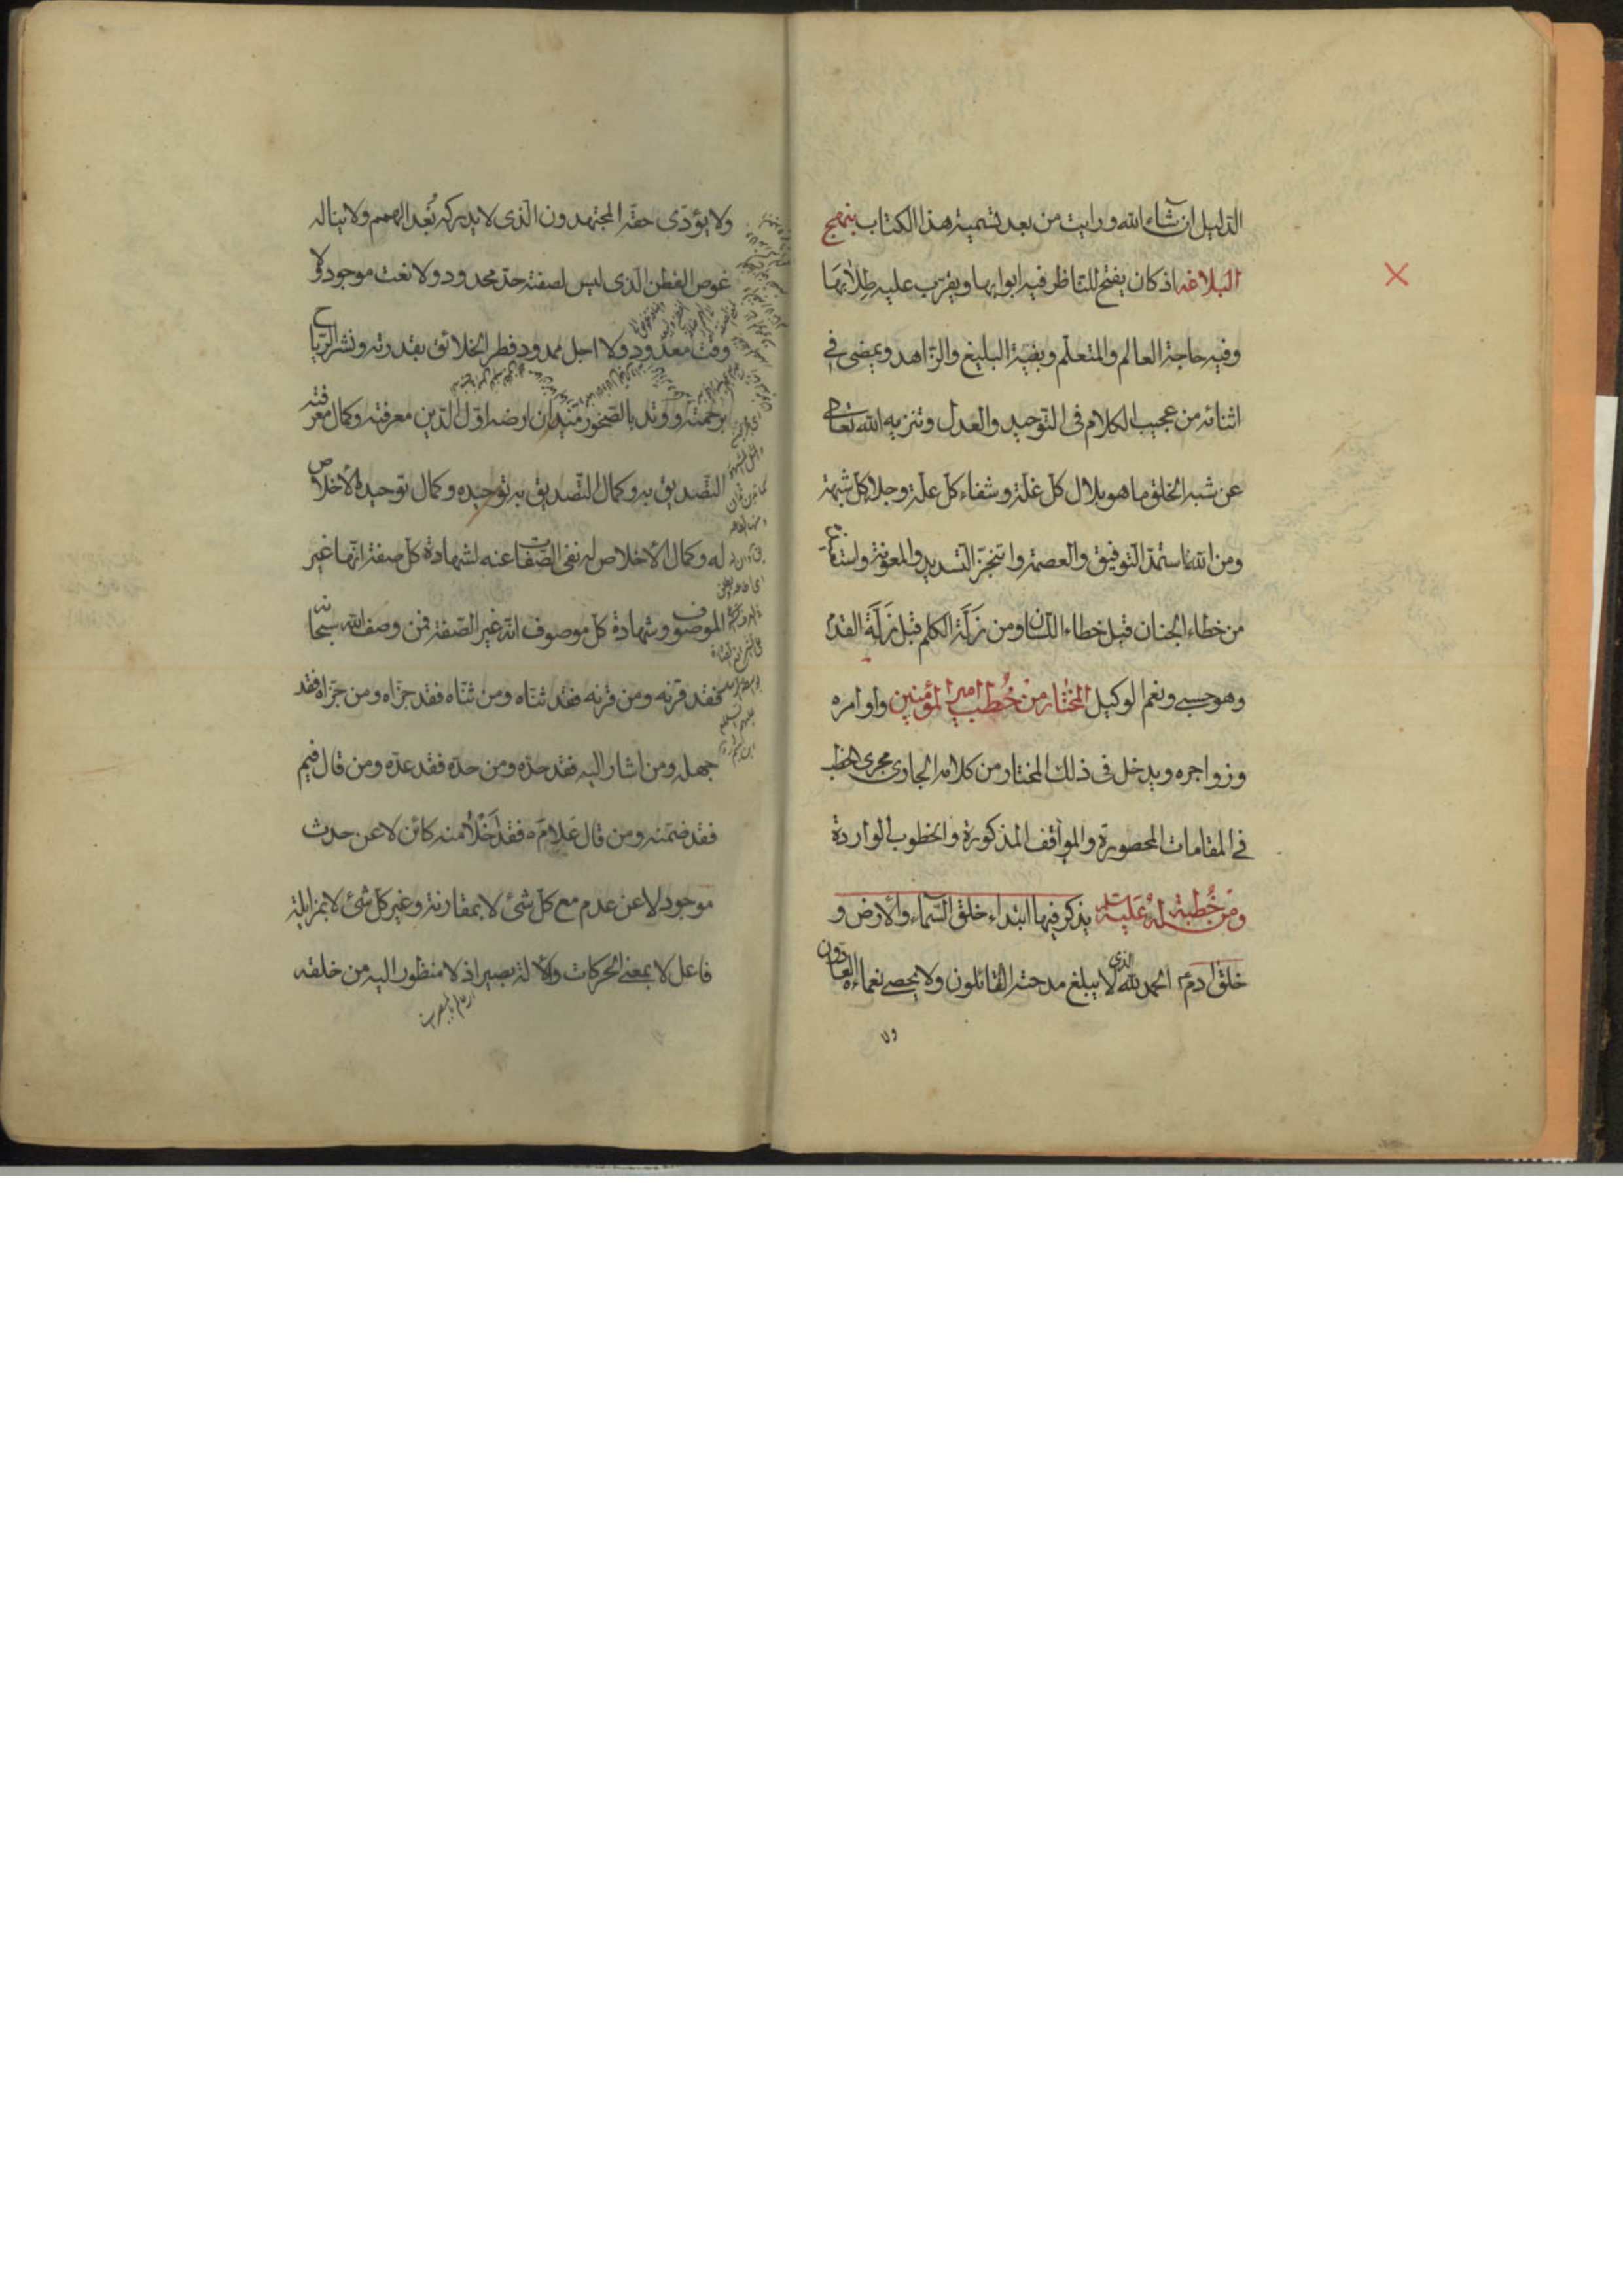 الدليل ان شاء الله ورايت من بعد تسمية هذا الكتاب بنهج
البلاغه اذ كان يفتح للناظر فيه ابوابها ويقرب عليه طلابها
وفيه حاجة العالم والمتعلم وبغية البليغ والزاهد ويمضى في
اثنائه من عجيب الكلام فى التوحيد والعدل وتنزيه الله تعالى
عن شبه الخلق ما هو بلال كل غلة وشفاء كل علة وجلاء كل شبهة
ومن الله استمد التوفيق والعصمة واتنجز التسديد والمعونة واستعا
من خطاء الجنان قبل خطاء اللسان ومن زَلَّة الكلم قبل زَلَّة القدم
وهو حسبي ونعم الوكيل المختار من خُطب امير المؤمنين واوامره
وزواجره ويدخل فى ذلك المختار من كلامه الجارى مجرى الخطب
في المقامات المحصورة والمواقف المذكورة والخطوب الواردة
ومن خُطبة له عليه يذكر فيها ابتداء خلق السماء والارض و
خلق ادم الحمد لله الذى لا يبلغ مدحته القائلون ولا يحصى نعماءه العادّون
ولا
ولا يؤدّى حقه المجتهدون الذى لا يدركه بُعد الهمم ولا يناله
غوص الفطن الذى ليس لصفته حدّ محدود ولا نعت موجود ولا
وقت معدود ولا اجل ممدود فطر الخلائق بقدرته ونشر الرياح
برحمته ووتد بالصخور ميدان ارضه اول الدين معرفته وكمال معرفته
التصديق به وكمال التصديق به توحيده وكمال توحيده الاخلاص
له وكمال الاخلاص له نفى الصفات عنه لشهادة كل صفة انها غير
الموصوف وشهادة كل موصوف انه غير الصفة فمن وصف الله سبحانه
فقد قرنه ومن قرنه فقد ثنّاه ومن ثنّاه فقد جزّاه ومن جزّاه فقد
جهله ومن اشار اليه فقد حدّه ومن حدّه فقد عدّه ومن قال فيم
فقد ضمّنه ومن قال عَلامَ فقد اَخْلاٰ منه كائن لا عن حدث
موجود لا عن عدم مع كل شئ لا بمقارنة وغير كل شئ لا بمزايلة
فاعل لا بمعنى الحركات والآلة بصير اذ لا منظور اليه من خلقه